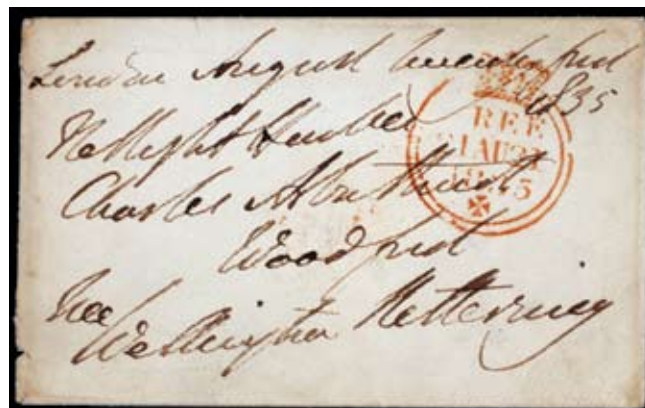 London August twenty first
1835
The Right Honble
Charles Arbuthnot
Woodford
Free
Wellington Kettering
REE
21AU21
1835